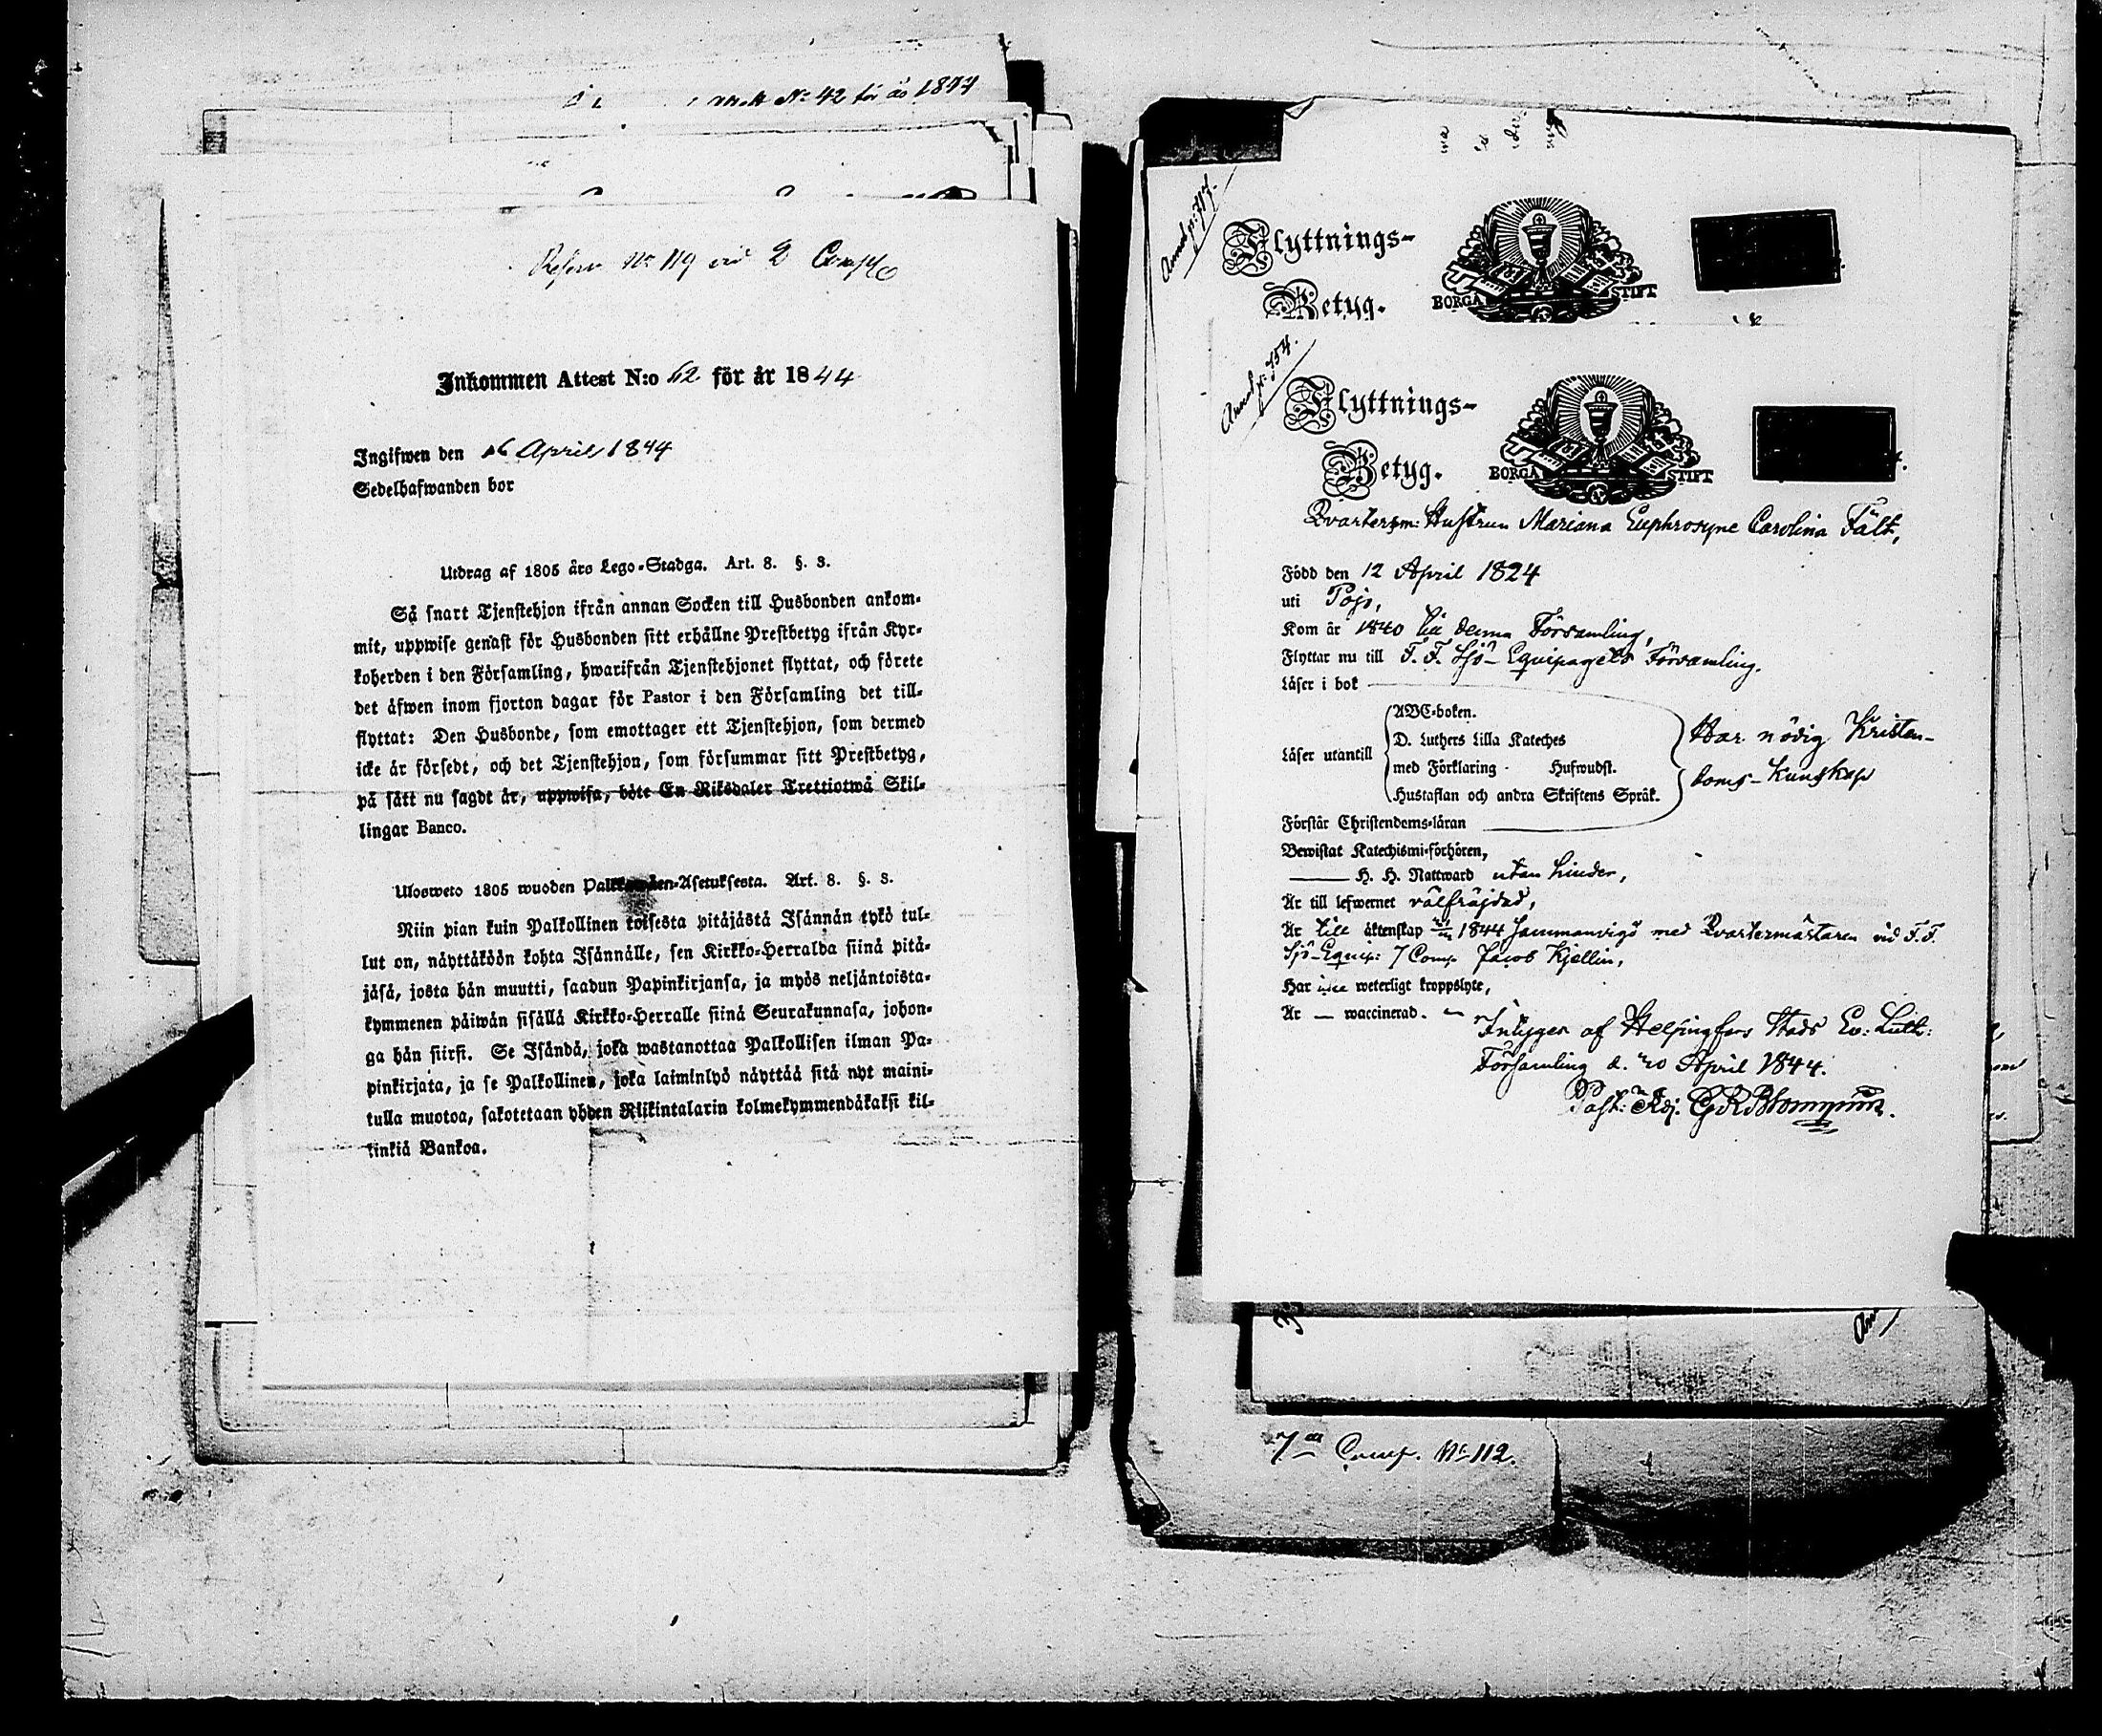 Att N:o 42 för år 1844
Refer N:o 119 vid 2 Comp
Inkommen Attest N:o 62 för år 1844
Ingifwen den 26 April 1844
Sedelhafwanden bor
Utdrag af 1805 års Lego-Stadga. Art. 8. §. 3.
Så snart Tjenstehjon ifrån annan Socken till Husbonden ankom-
mit, uppwise genast för Husbonden sitt erhållne Prestbetyg ifrån Kyr-
koherden i den Församling, hwarifrån Tjenstehjonet flyttat, och förete
det äfwen inom fjorton dagar för Pastor i den Församling det till-
flyttat: Den Husbonde, som emottager ett Tjenstehjon, som dermed
icke är försedt, och det Tjenstehjon, som försummar sitt Prestbetyg,
på sätt nu sagdt är, uppwisa, böte En Riksdaler Trettiotwå Skil-
lingar Banco.
Ulosweto 1805 wuoden Palkkawäen-Asetuksesta. Art. 8. §. 3.
Niin pian kuin Palkollinen toisesta pitäjästä Isännän tykö tul-
lut on, näyttäköön kohta Isännälle, sen Kirkko-Herralda siinä pitä-
jäsä, josta hän muutti, saadun Papinkirjansa, ja myös neljäntoista-
kymmenen päiwän sisällä Kirkko-Herralle siinä Seurakunnasa, johon-
ga hän siirsi. Se Isändä, joka wastanottaa Palkollisen ilman Pa-
pinkirjata, ja se Palkollinen, joka laiminlyö näyttää sitä nyt maini-
tulla muotoa, sakotetaan yhden Riikintalarin kolmekymmendäkaksi kil-
linkiä Bankoa.
Flyttnings-
Betyg.
BORGÅ STIFT
Flyttnings-
Betyg.
BORGÅ STIFT
Qvartersm: Hustrun Mariana Euphrosyne Carolina Fält,
Född den 12 April 1824
uti Pojo,
Kom år 1840 till denna Församling,
Flyttar nu till F. F. Sjö-Equipagets Församling.
Läser i bok
Läser utantill
ABC-boken.
D. Luthers Lilla Kateches
med Förklaring - Hufwudst.
Hustaflan och andra Skriftens Språk.
Har nödig Kristen-
doms-Kunskap
Förstår Christendoms-läran
Bewistat Katechismi-förhören,
H. H. Nattward utan hinder,
Är till lefwernet välfräjdad,
Är till äktenskap 1844 sammanvigd med Qvartermästaren vid F. F.
Sjö-Equip: 7 Comp Jacob Kjellin,
Har icke weterligt kroppslyte,
Är — waccinerad.
Intygar af Helsingfors Stads Ev: Luth:
Församling d. 20 April 1844.
Past: Adj. G R Blomqvist.
7de Comp. N:o 112.